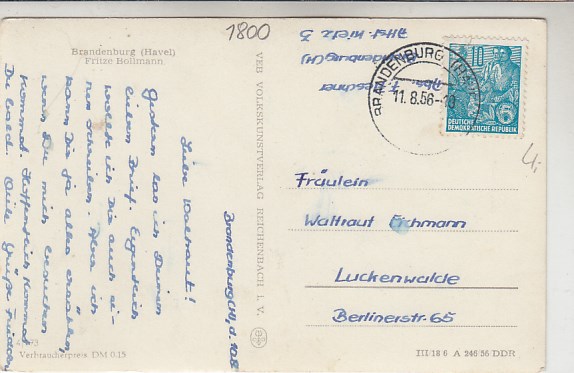 1800
Brandenburg (Havel)
Fritze Bollmann
Brandenburg(H), d. 10.8.
Liebe Waltraut!
Gestern las ich Deinen
lieben Brief. Eigentlich
wollte ich Dir auch ei-
nen schreiben. Aber ich
kann Dir ja alles erzählen,
wenn Du mich besuchen
kommst. Hoffentlich kommst
Du bald. Viele Grüße
4/493
Verbraucherpreis DM 0.15
VEB VOLKSKUNSTVERLAG REICHENBACH I. V.
Abs.
Brandenburg(H)
BRANDENBURG (HAVEL)
11.8.56
10
DEUTSCHE
DEMOKRATISCHE REPUBLIK
Fräulein
Waltraut Eichmann
Luckenwalde
Berlinerstr. 65
III/18 6 A 246/56 DDR